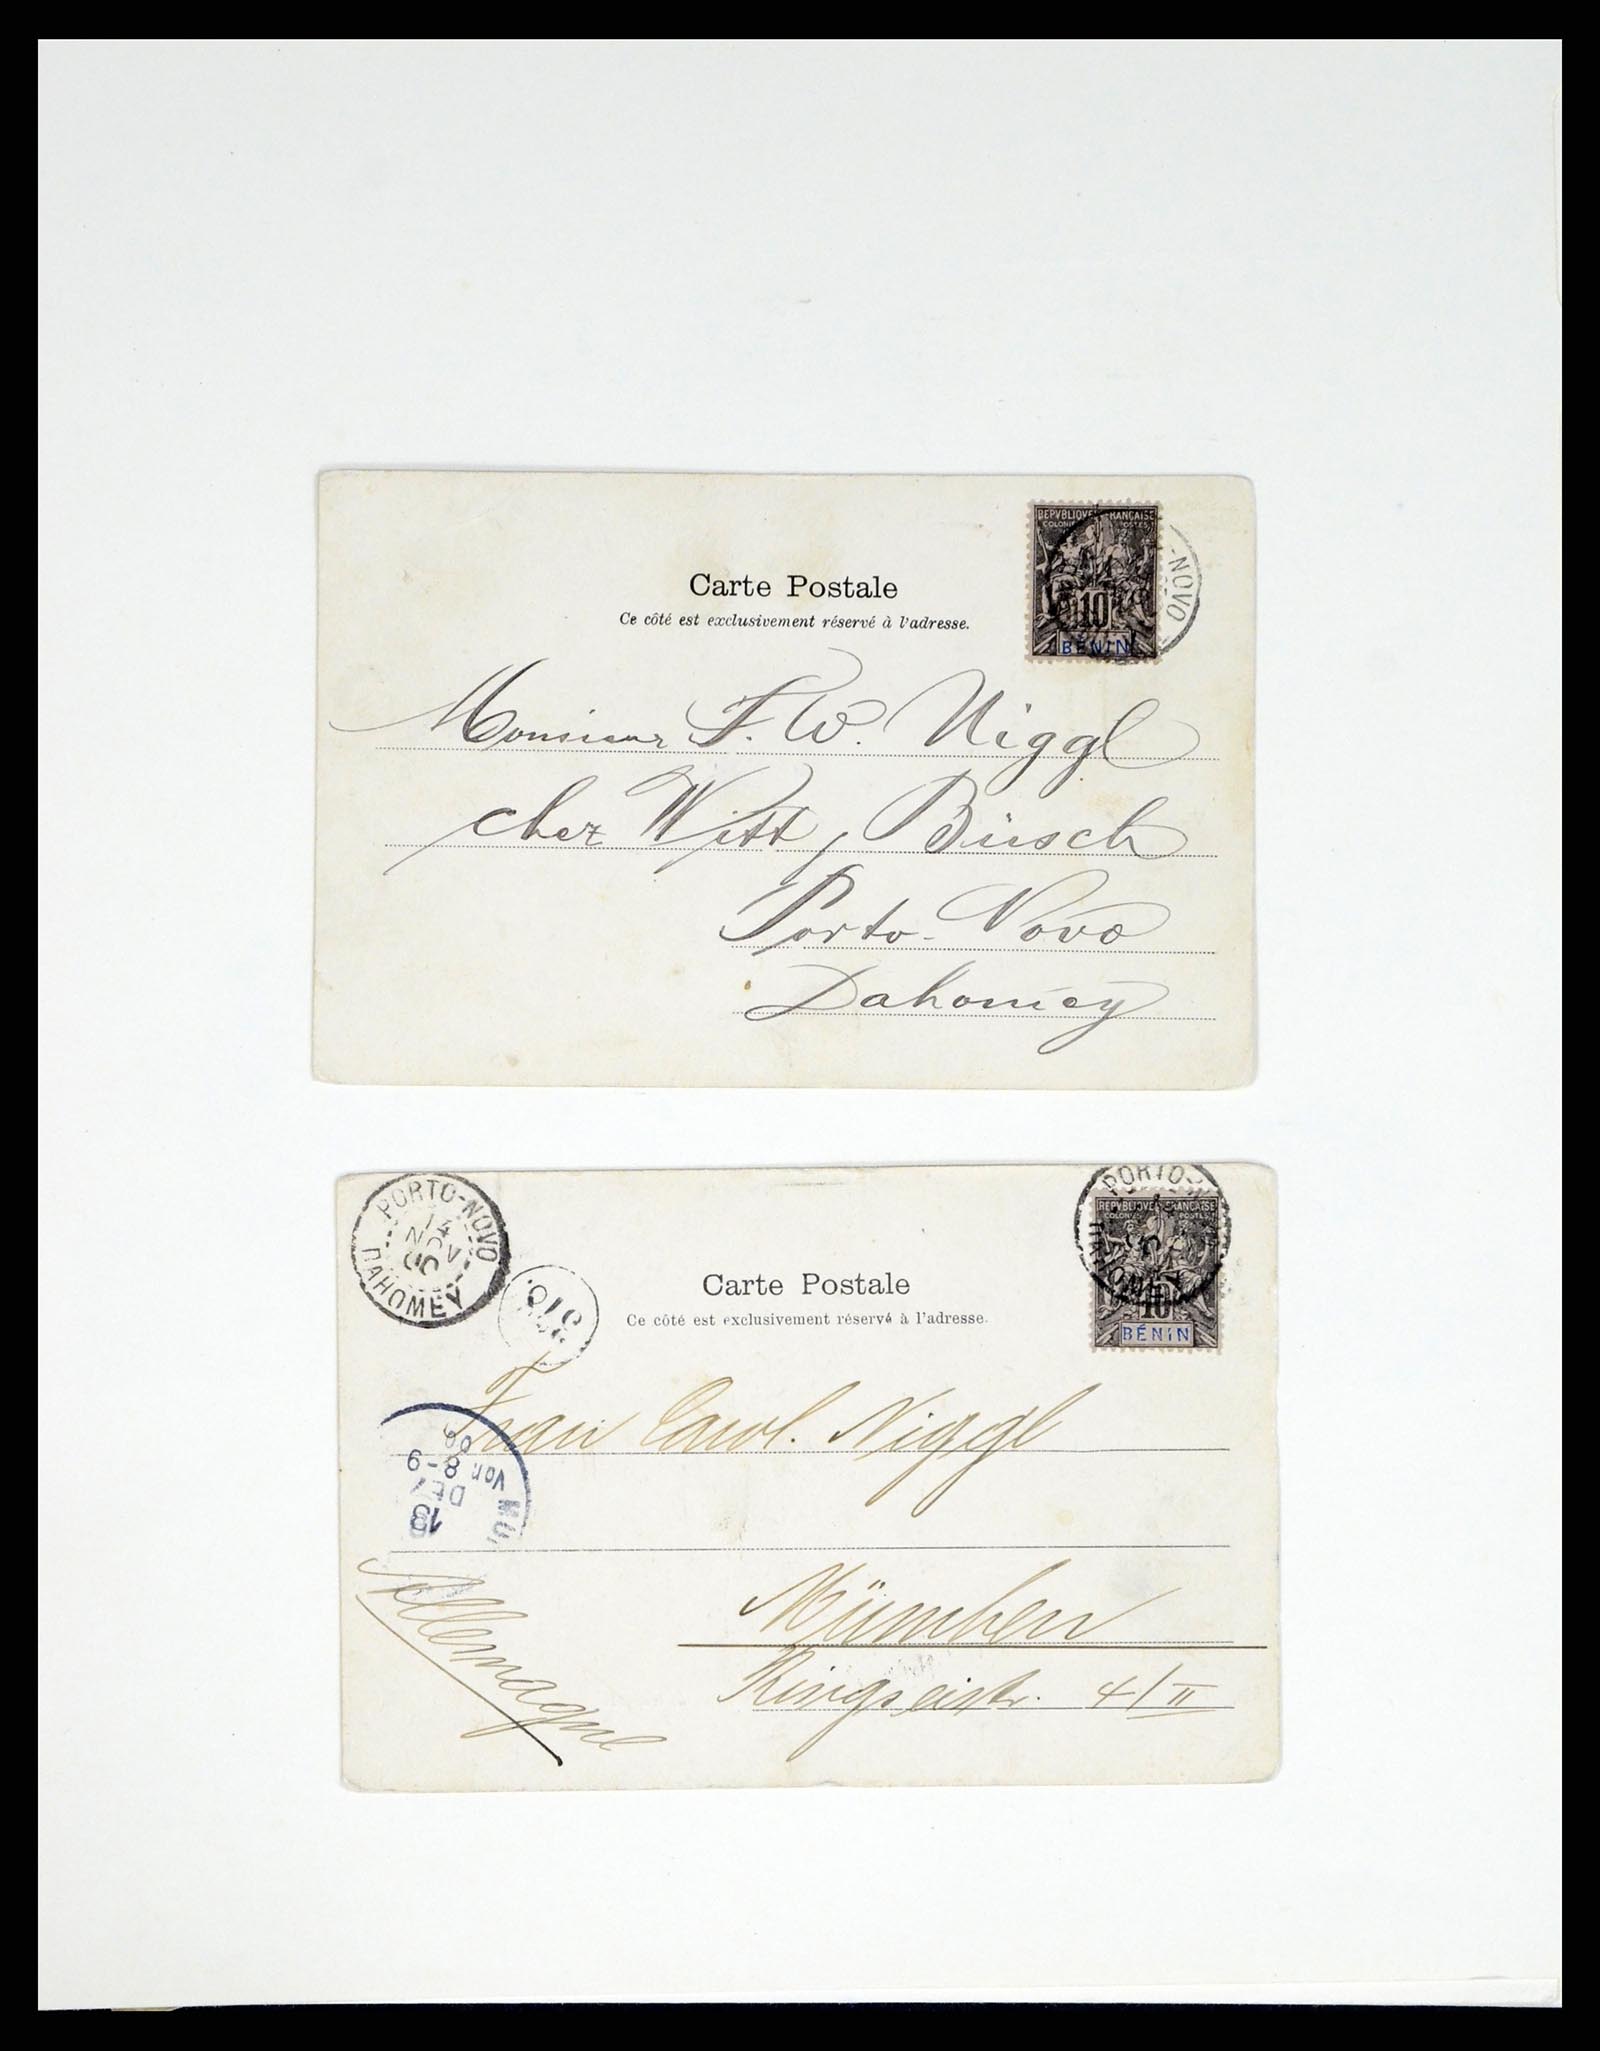 REPVBLIQVE FRANÇAISE
COLONIES POSTES
10
BÉNIN
-NOVO
Carte Postale
Ce côté est exclusivement réservé à l'adresse.
Monsieur F. W. Niggl
chez Witt, Büsch
Porto-Novo
Dahomey
PORTO-NOVO
14
NOV
00
DAHOMEY
PORTO-N
DAHOMEY
REPVBLIQVE FRANÇAISE
COLONIES POSTES
10
BÉNIN
Carte Postale
Ce côté est exclusivement réservé à l'adresse.
Frau Carol. Niggl
MÜ
13
DEZ
Vor. 8-9
00
München
Ringseistr. 4/II
Allemagne